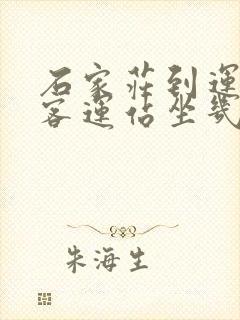 石家莊到運
客運佔坐幾
朱海生